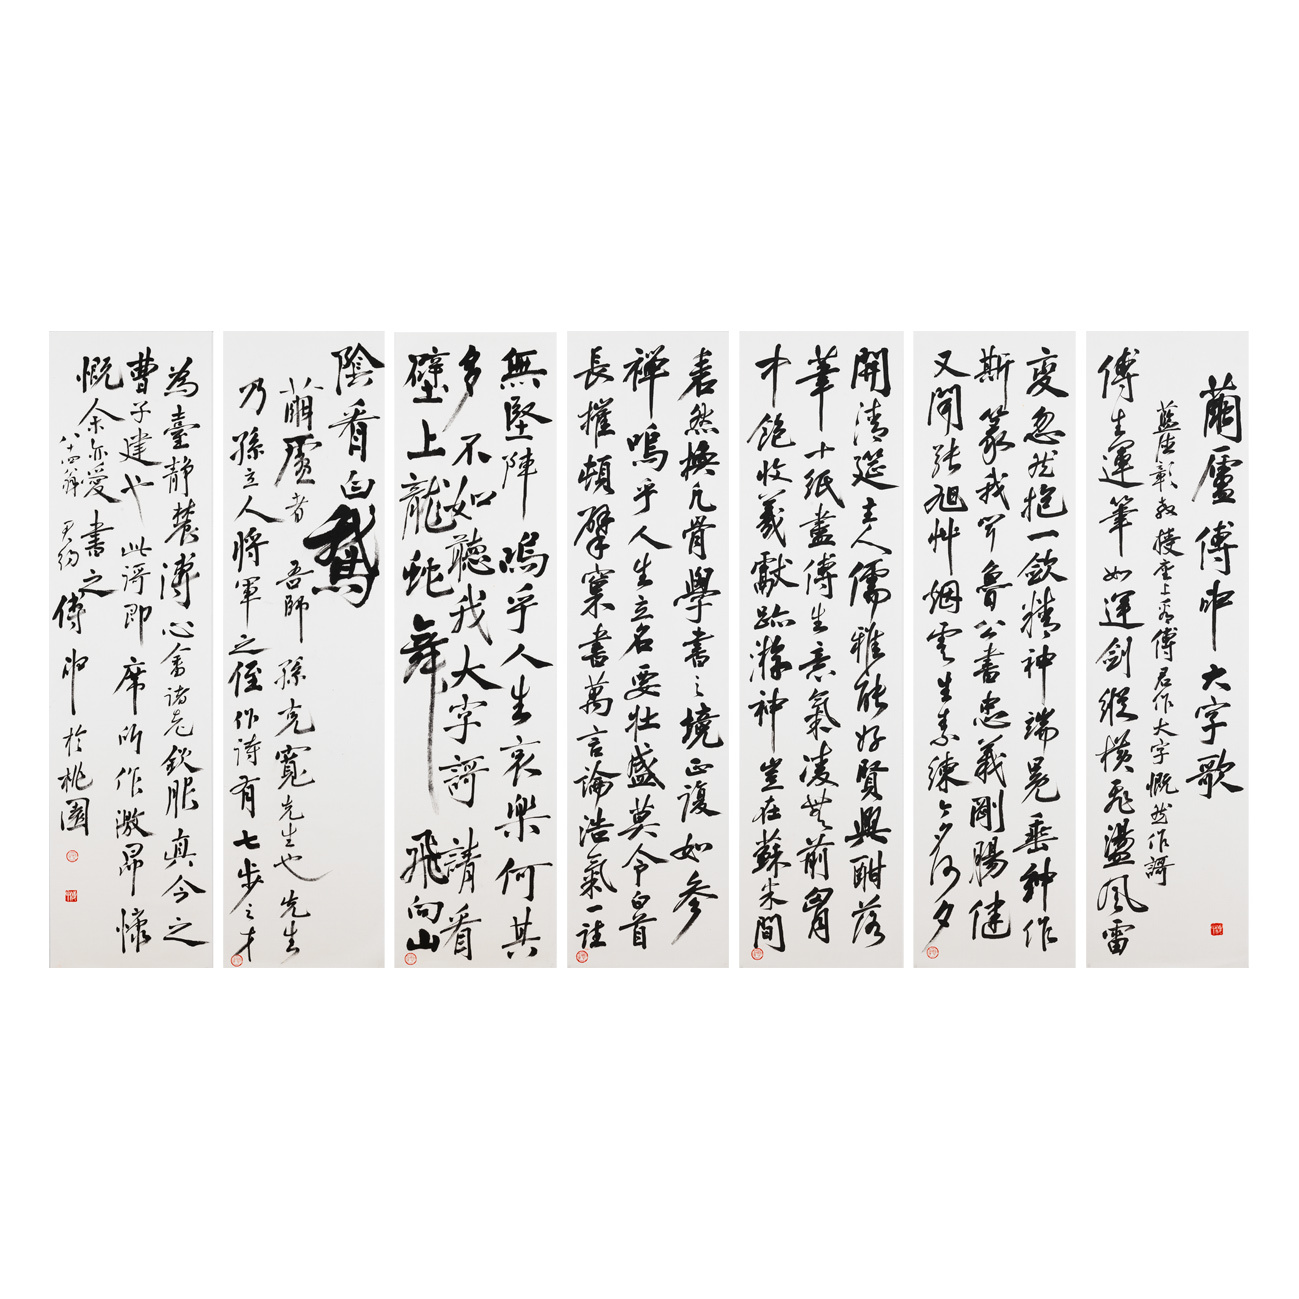 繭廬傅申大字歌
藍德彰教授堂上為傅君作大字慨然作謌
傅生運筆如運劍縱橫飛盪風雷
變忽然抱一歛精神端冕垂紳作
斯篆我聞魯公書忠義剛腸健
又聞張旭艸烟雲生素練今夕何夕
開清筵主人儒雅能好賢興酣落
筆十紙盡傅生意氣凌無前胷
中飽收羲獻跡瀠神豈在蘇米間
書然換凡骨學書之境正復如參
禪嗚乎人生立名要壯盛莫令白首
長摧頓擘窠書萬言論浩氣一往
無堅陣嗚乎人生哀樂何其
多不如聽我大字謌請看
壁上龍虵舞飛向山
陰看白鵝
繭廬者吾師孫克寬先生也先生
乃孫立人將軍之侄作詩有七步之才
為臺靜農溥心畬諸老欽服真今之
曹子建也此謌即席所作激昂慷
慨余亦愛書之
八十四弟君約傅申於桃園